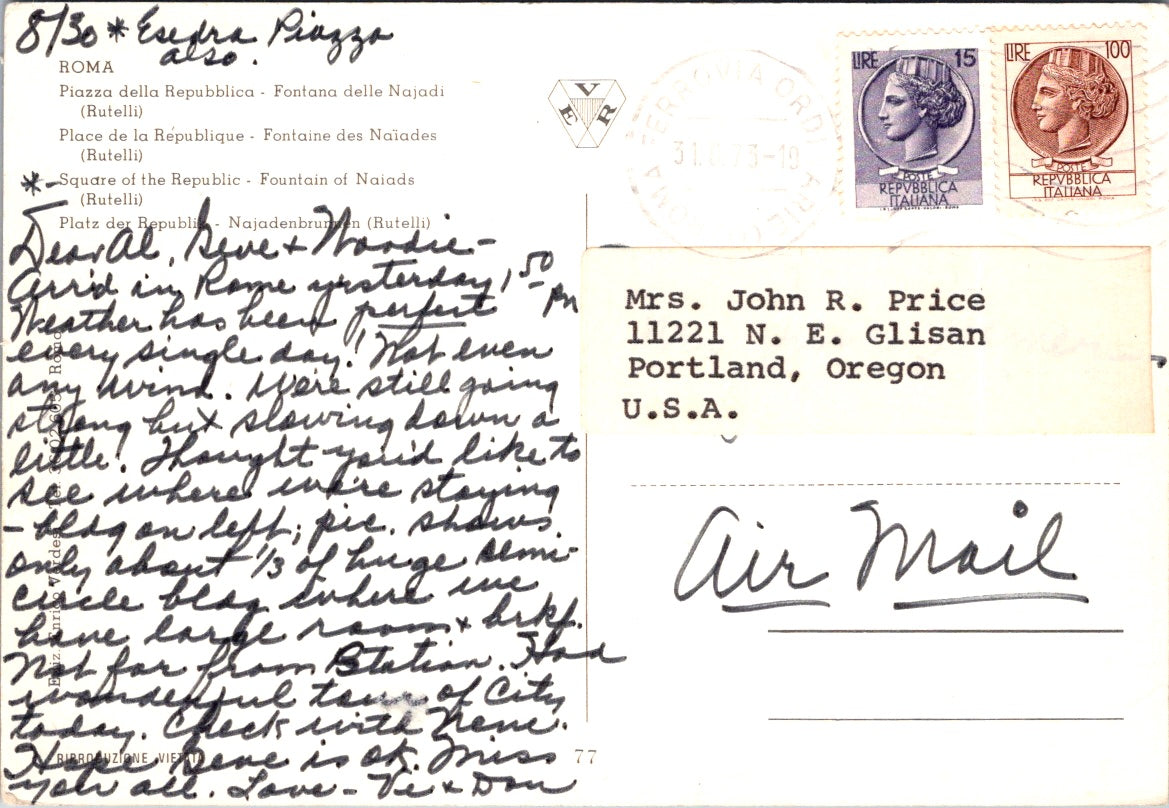 8/30 * Esedra Piazza
also.
ROMA
Piazza della Repubblica - Fontana delle Najadi
(Rutelli)
Place de la République - Fontaine des Naïades
(Rutelli)
*- Square of the Republic - Fountain of Naiads
(Rutelli)
Platz der Republik - Najadenbrunnen (Rutelli)
VER
LIRE 15
POSTE
REPVBBLICA
ITALIANA
LIRE 100
POSTE
REPVBBLICA
ITALIANA
FERROVIA ORD
73-19
Dear Al, Geve + Woodie -
Arr'd in Rome yesterday, 1:50 PM
Weather has been perfect
every single day! Not even
any wind. We're still going
strong but slowing down a
little! Thought you'd like to
see where we're staying
- bldg on left; pic. shows
only about 1/3 of huge semi-
circle bldg where we
have large room + brkf.
Not far from Station. Had
wonderful tour of City
today. Check with Nene.
Hope Geve is ok. Miss
you all. Love - Vi + Don
Mrs. John R. Price
11221 N. E. Glisan
Portland, Oregon
U.S.A.
Air Mail
Ediz. Enrico Verdesi Roma
RIPRODUZIONE VIETATA
77